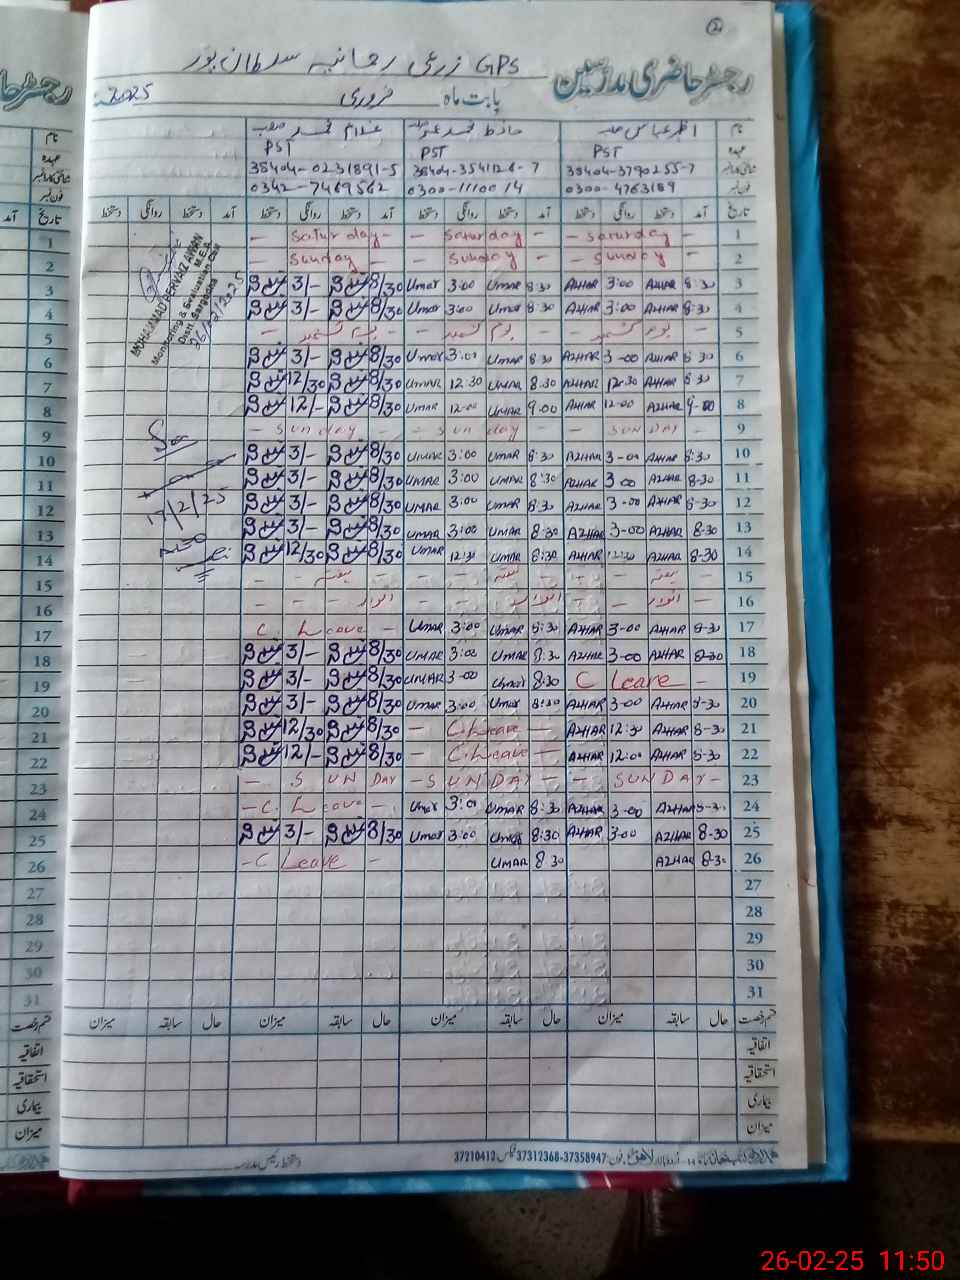 ②
GPS زرعی رحمانیہ سلطان پور
رجسٹر حاضری مدرسین
بابت ماہ فروری 2025
نام اظہر عباس صاحب حافظ محمد عمر صاحب غلام محمد صاحب
عہدہ PST PST PST
شناختی کارڈ نمبر 38404-3790255-7 38404-3541126-7 38404-0231891-5
فون نمبر 0300-4763189 0300-1110014 0342-7469562
تاریخ آمد دستخط روانگی دستخط آمد دستخط روانگی دستخط آمد دستخط روانگی دستخط آمد دستخط روانگی دستخط
1 - Saturday - - Saturday - - Saturday -
2 - Sunday - - Sunday - - Sunday -
3 8:30 AZHAR 3:00 AZHAR 8:30 Umar 3:00 Umar 8/30 3/-
4 8:30 AZHAR 3:00 AZHAR 8:30 Umar 3:00 Umar 8/30 3/-
5 یوم کشمیر یوم کشمیر یوم کشمیر
6 8:30 AZHAR 3-00 AZHAR 8:30 UMAR 3:00 Umar 8/30 3/-
7 8:30 AZHAR 12:30 AZHAR 8:30 UMAR 12:30 UMAR 8/30 12/30
8 9-00 AZHAR 12-00 AZHAR 9:00 UMAR 12-00 UMAR 8/30 12/-
9 - SUNDAY - - Sunday - Sunday -
10 8:30 AZHAR 3-00 AZHAR 8:30 UMAR 3:00 UMAR 8/30 3/-
11 8-30 AZHAR 3-00 AZHAR 8:30 UMAR 3:00 UMAR 8/30 3/-
12 8-30 AZHAR 3-00 AZHAR 8:30 UMAR 3:00 UMAR 8/30 3/-
13 8-30 AZHAR 3-00 AZHAR 8:30 UMAR 3:00 UMAR 8/30 3/-
14 8-30 AZHAR 12:30 AZHAR 8:30 UMAR 12:30 UMAR 8/30 12/30
15 - ہفتہ - - ہفتہ - - ہفتہ -
16 - اتوار - - اتوار - - اتوار -
17 8-30 AZHAR 3-00 AZHAR 8:30 UMAR 3:00 UMAR C Leave
18 8-30 AZHAR 3-00 AZHAR 8:30 UMAR 3:00 UMAR 8/30 3/-
19 - C leave 8:30 Umar 3-00 UMAR 8/30 3/-
20 8-30 AZHAR 3-00 AZHAR 8:30 Umar 3:00 Umar 8/30 3/-
21 8-30 AZHAR 12:30 AZHAR - C. Leave - 8/30 12/30
22 8-30 AZHAR 12:00 AZHAR - C. Leave - 8/30 12/-
23 - SUNDAY - - SUNDAY - - SUNDAY
24 8-30 AZHAR 3-00 AZHAR 8:30 UMAR 3:00 Umar - C. Leave -
25 8-30 AZHAR 3-00 AZHAR 8:30 Umar 3:00 Umar 8/30 3/-
26 8-30 AZHAR 8:30 UMAR - C Leave -
27
28
29
30
31
MOHAMMAD PERVAIZ AWAN
M.E.A
Monitoring & Evaluation Cell
Distt. Sargodha
26/02/2025
17/2/25
قسم رخصت حال سابقہ میزان حال سابقہ میزان حال سابقہ میزان حال سابقہ میزان
اتفاقیہ
استحقاقیہ
بیماری
میزان
دستخط رئیس مدرسہ
اردو بازار لاہور فون: 37312368-37358947 فیکس 37210412
رجسٹر حا
نام
عہدہ
شناختی کارڈ نمبر
فون نمبر
تاریخ آمد
1
2
3
4
5
6
7
8
9
10
11
12
13
14
15
16
17
18
19
20
21
22
23
24
25
26
27
28
29
30
31
قسم رخصت
اتفاقیہ
استحقاقیہ
بیماری
میزان
26-02-25 11:50